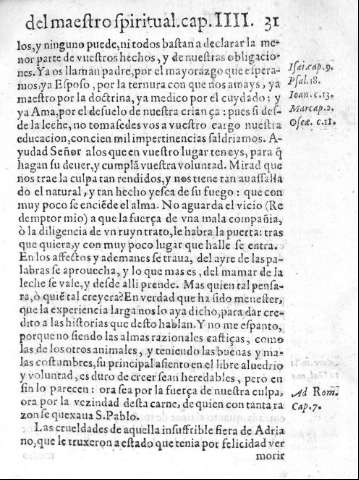 del maestro spiritual. cap. IIII. 31
los, y ninguno puede, ni todos bastan a declarar la me-
nor parte de vuestros hechos, y de nuestras obligacio-
nes. Ya os llaman padre, por el mayorazgo que espera-
mos, ya Esposo, por la ternura con que nos amays, ya
maestro por la doctrina, ya medico por el cuydado; y
ya Ama, por el desuelo de nuestra criança: pues si des-
de la leche, no tomasedes vos a vuestro cargo nuestra
educacion, con cien mil impertinencias saldriamos. A-
yudad Señor a los que en vuestro lugar teneys, para q̃
hagan su deuer, y cumplã vuestra voluntad. Mirad que
nos trae la culpa tan rendidos, y nos tiene tan auassalla
do el natural, y tan hecho yesca de su fuego: que con
muy poco se enciẽde el alma. No aguarda el vicio (Re
demptor mio) a que la fuerça de vna mala compañia,
ò la diligencia de vn ruyn trato, le habra la puerta: tras
que quiera, y con muy poco lugar que halle se entra.
En los affectos y ademanes se traua, del ayre de las pa-
labras se aprouecha, y lo que mas es, del mamar de la
leche se vale, y desde alli prende. Mas quien tal pensa-
ra, ò quiẽ tal creyera? En verdad que ha sido menester,
que la experiencia larga nos lo aya dicho, para dar cre-
dito a las historias que desto hablan. Y no me espanto,
porque no siendo las almas razionales castiças, como
las de los otros animales, y teniendo las buenas y ma-
las costumbres, su principal asiento en el libre aluedrio
y voluntad, es duro de creer sean heredables, pero en
fin lo parecen: ora sea por la fuerça de nuestra culpa,
ora por la vezindad desta carne, de quien con tanta ra
zon se quexaua S. Pablo.
Las crueldades de aquella insuffrible fiera de Adria
no, que le truxeron a estado que tenia por felicidad ver
morir
Isai. cap. 9.
Psal. 18.
Ioan. c. 13.
Marcap. 2.
Osea. c. 11.
Ad Rom.
Cap. 7.